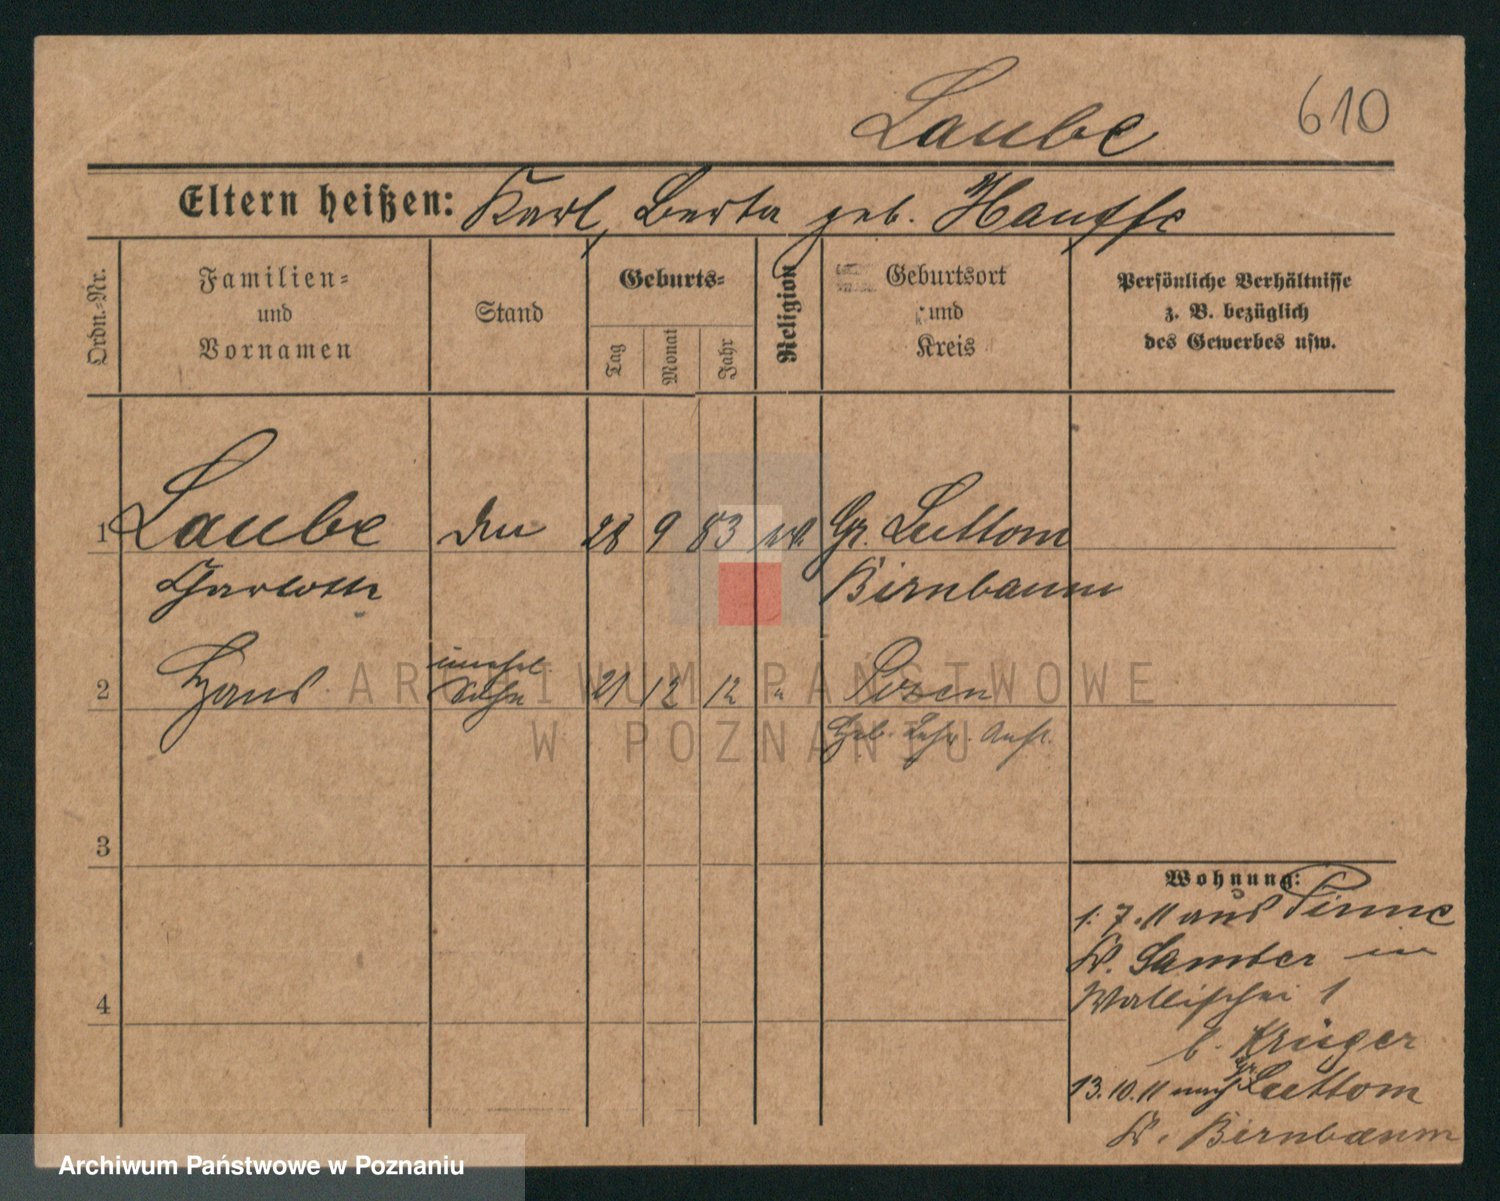 Laube 610
Eltern heißen: Karl, Berta geb. Hauffe
Ordn.-Nr.
Familien-
und
Vornamen
Stand
Geburts-
Tag
Monat
Jahr
Religion
Geburtsort
und
Kreis
Persönliche Verhältnisse
z. B. bezüglich
des Gewerbes usw.
1 Laube 28 9 83 Gr. Luttom
Charlotte Birnbaum
unehel.
2 Hans Sohn 21 12 12 " Posen
Geb. Anst.
3
4
Wohnung:
1. 7. 11 aus Pinne
K. Samter in
Wallischei 1
b. Krüger
13. 10. 11 nach Gr. Luttom
K. Birnbaum
ARCHIWUM PAŃSTWOWE
W POZNANIU
Archiwum Państwowe w Poznaniu